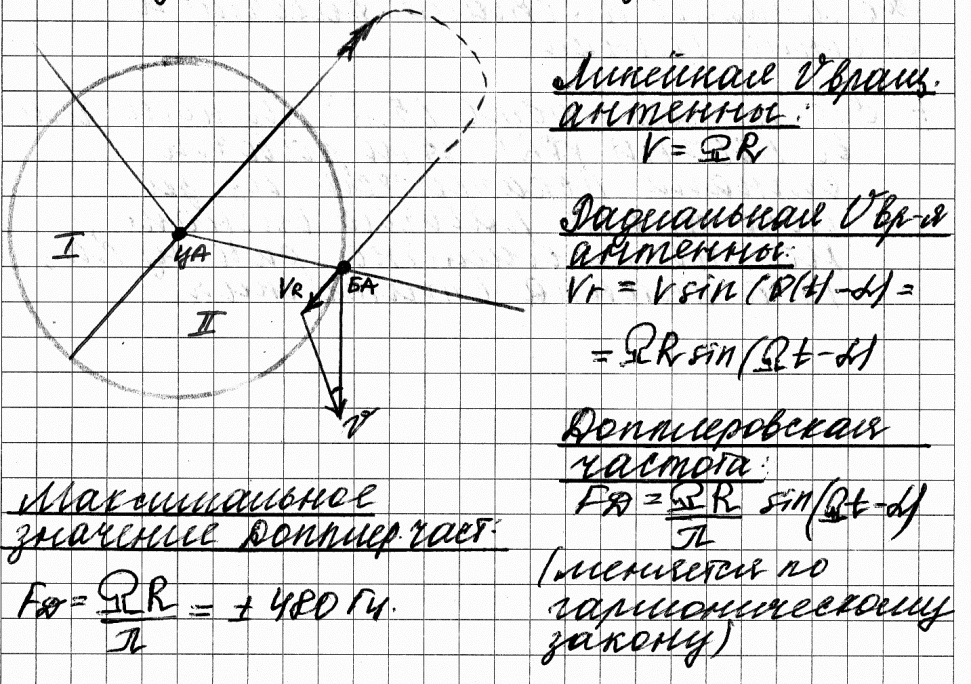 I
ЦА
БА
VR
II
V
Линейная V вращ.
антенны:
V = ΩR
Радиальная V вр-я
антенны:
Vr = V sin(Ω(t)-α) =
= ΩR sin(Ωt-α)
Допплеровская
частота:
FД = ΩR/λ sin(Ωt-α)
(меняется по
гармоническому
закону)
Максимальное
значение Допплер. част:
FД = ΩR/λ = ± 480 Гц.